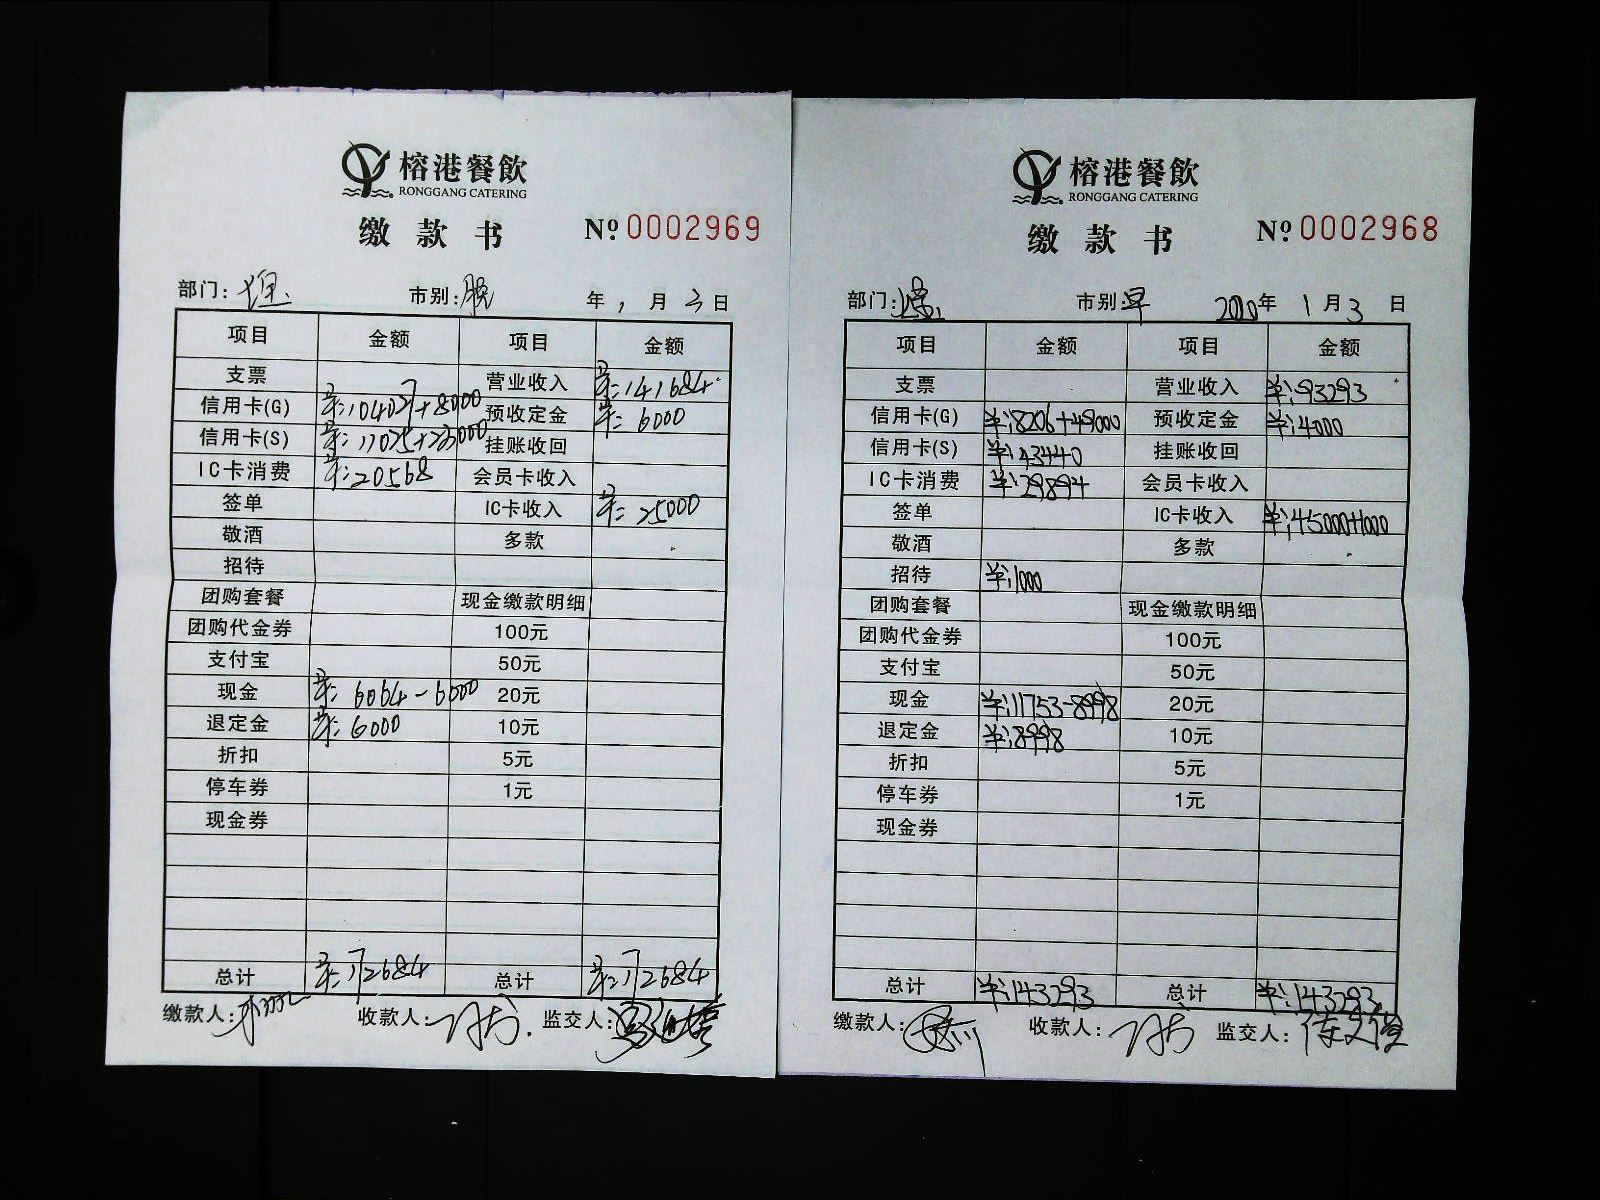 榕港餐飲
RONGGANG CATERING
缴款书 № 0002969
部门: 市别:晚 年 1 月 3 日
项目 金额 项目 金额
支票 营业收入 ¥:141684
信用卡(G) ¥:104027+8000 预收定金 ¥:6000
信用卡(S) ¥:11025+23000 挂账收回
IC卡消费 ¥:20568 会员卡收入
签单 IC卡收入 ¥:25000
敬酒 多款
招待
团购套餐 现金缴款明细
团购代金券 100元
支付宝 50元
现金 ¥:6064-6000 20元
退定金 ¥:6000 10元
折扣 5元
停车券 1元
现金券
总计 ¥:172684 总计 ¥:172684
缴款人: 收款人: 监交人:
榕港餐飲
RONGGANG CATERING
缴款书 № 0002968
部门: 市别:早 年 1 月 3 日
项目 金额 项目 金额
支票 营业收入 ¥:93293
信用卡(G) ¥:8206+49000 预收定金 ¥:4000
信用卡(S) ¥:43440 挂账收回
IC卡消费 ¥:29894 会员卡收入
签单 IC卡收入 ¥:45000+1000
敬酒 多款
招待 ¥:1000
团购套餐 现金缴款明细
团购代金券 100元
支付宝 50元
现金 ¥:11753-8998 20元
退定金 ¥:8998 10元
折扣 5元
停车券 1元
现金券
总计 ¥:143293 总计 ¥:143293
缴款人: 收款人: 监交人: